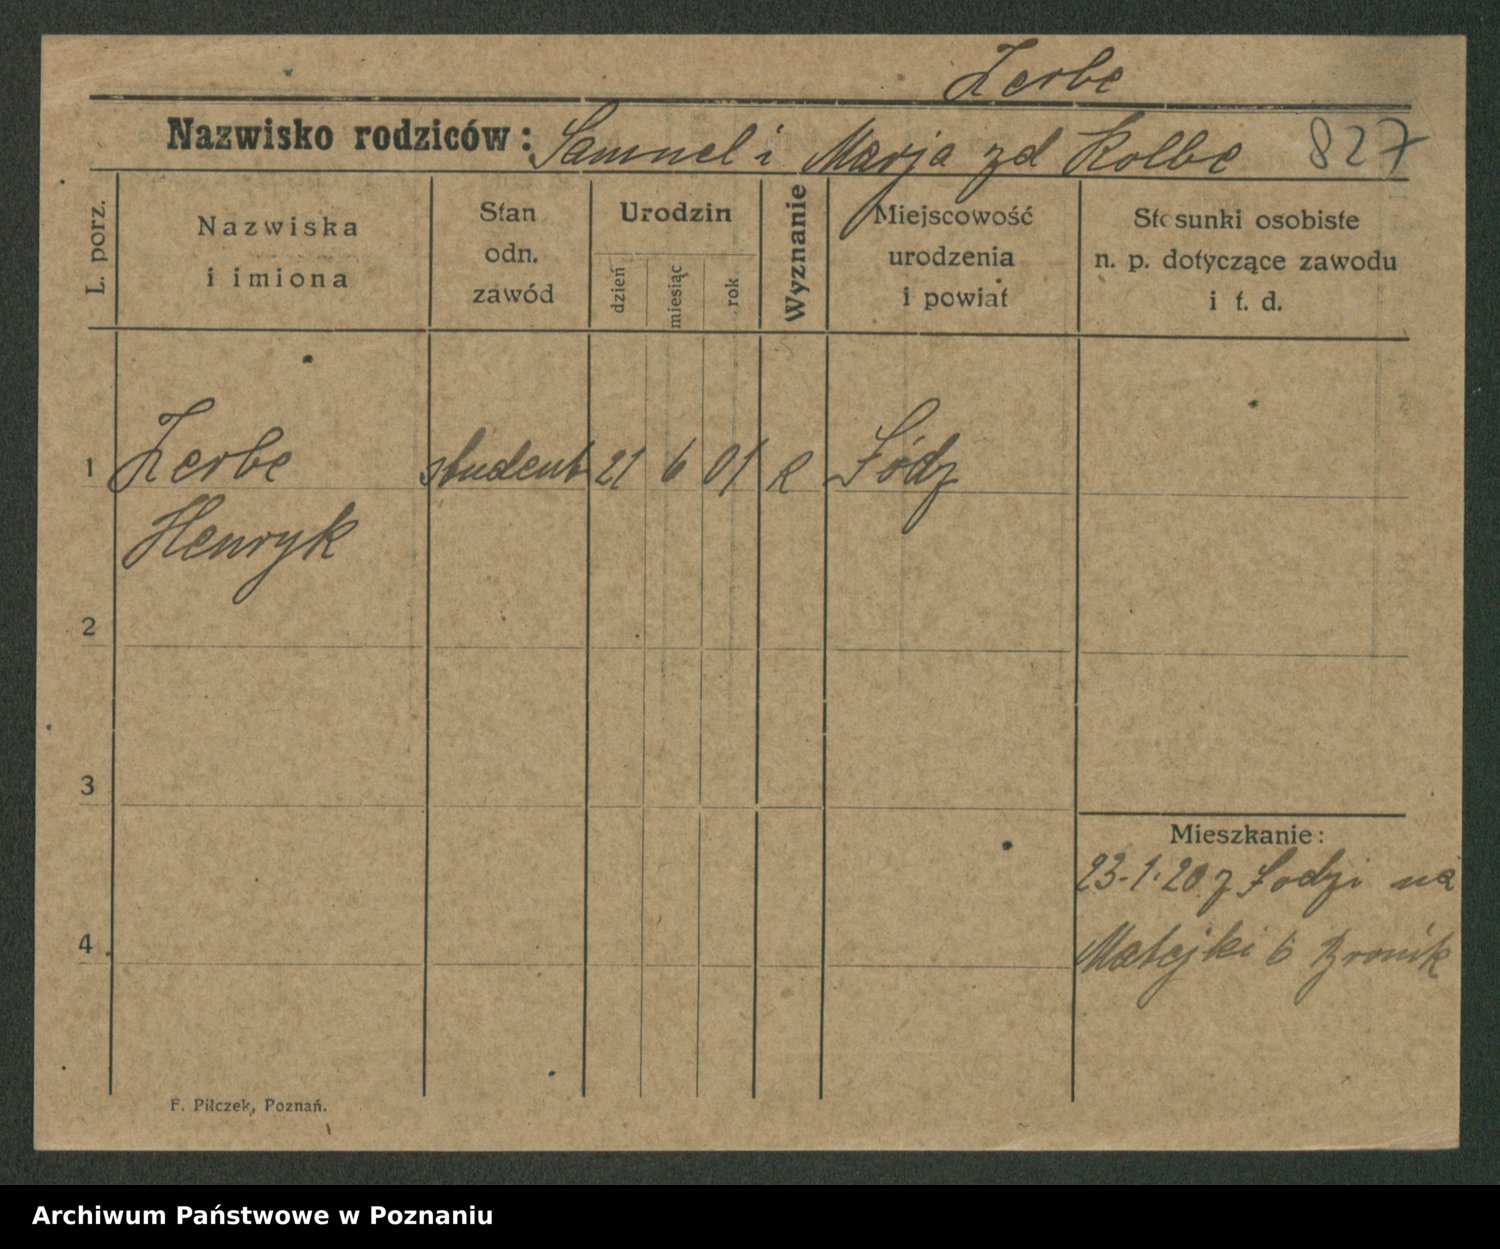 Zerbe
Nazwisko rodziców: Samuel i Marja zd Kolbe 827
L. porz.
Nazwiska
i imiona
Stan
odn.
zawód
Urodzin
dzień
miesiąc
rok
Wyznanie
Miejscowość
urodzenia
i powiat
Stosunki osobiste
n. p. dotyczące zawodu
i t. d.
1 Zerbe student 21 6 01 Łódz
Henryk
2
3
4
Mieszkanie:
23.1.20 z Łodzi na
Matejki 6 Bronik
F. Pilczek, Poznań.
Archiwum Państwowe w Poznaniu